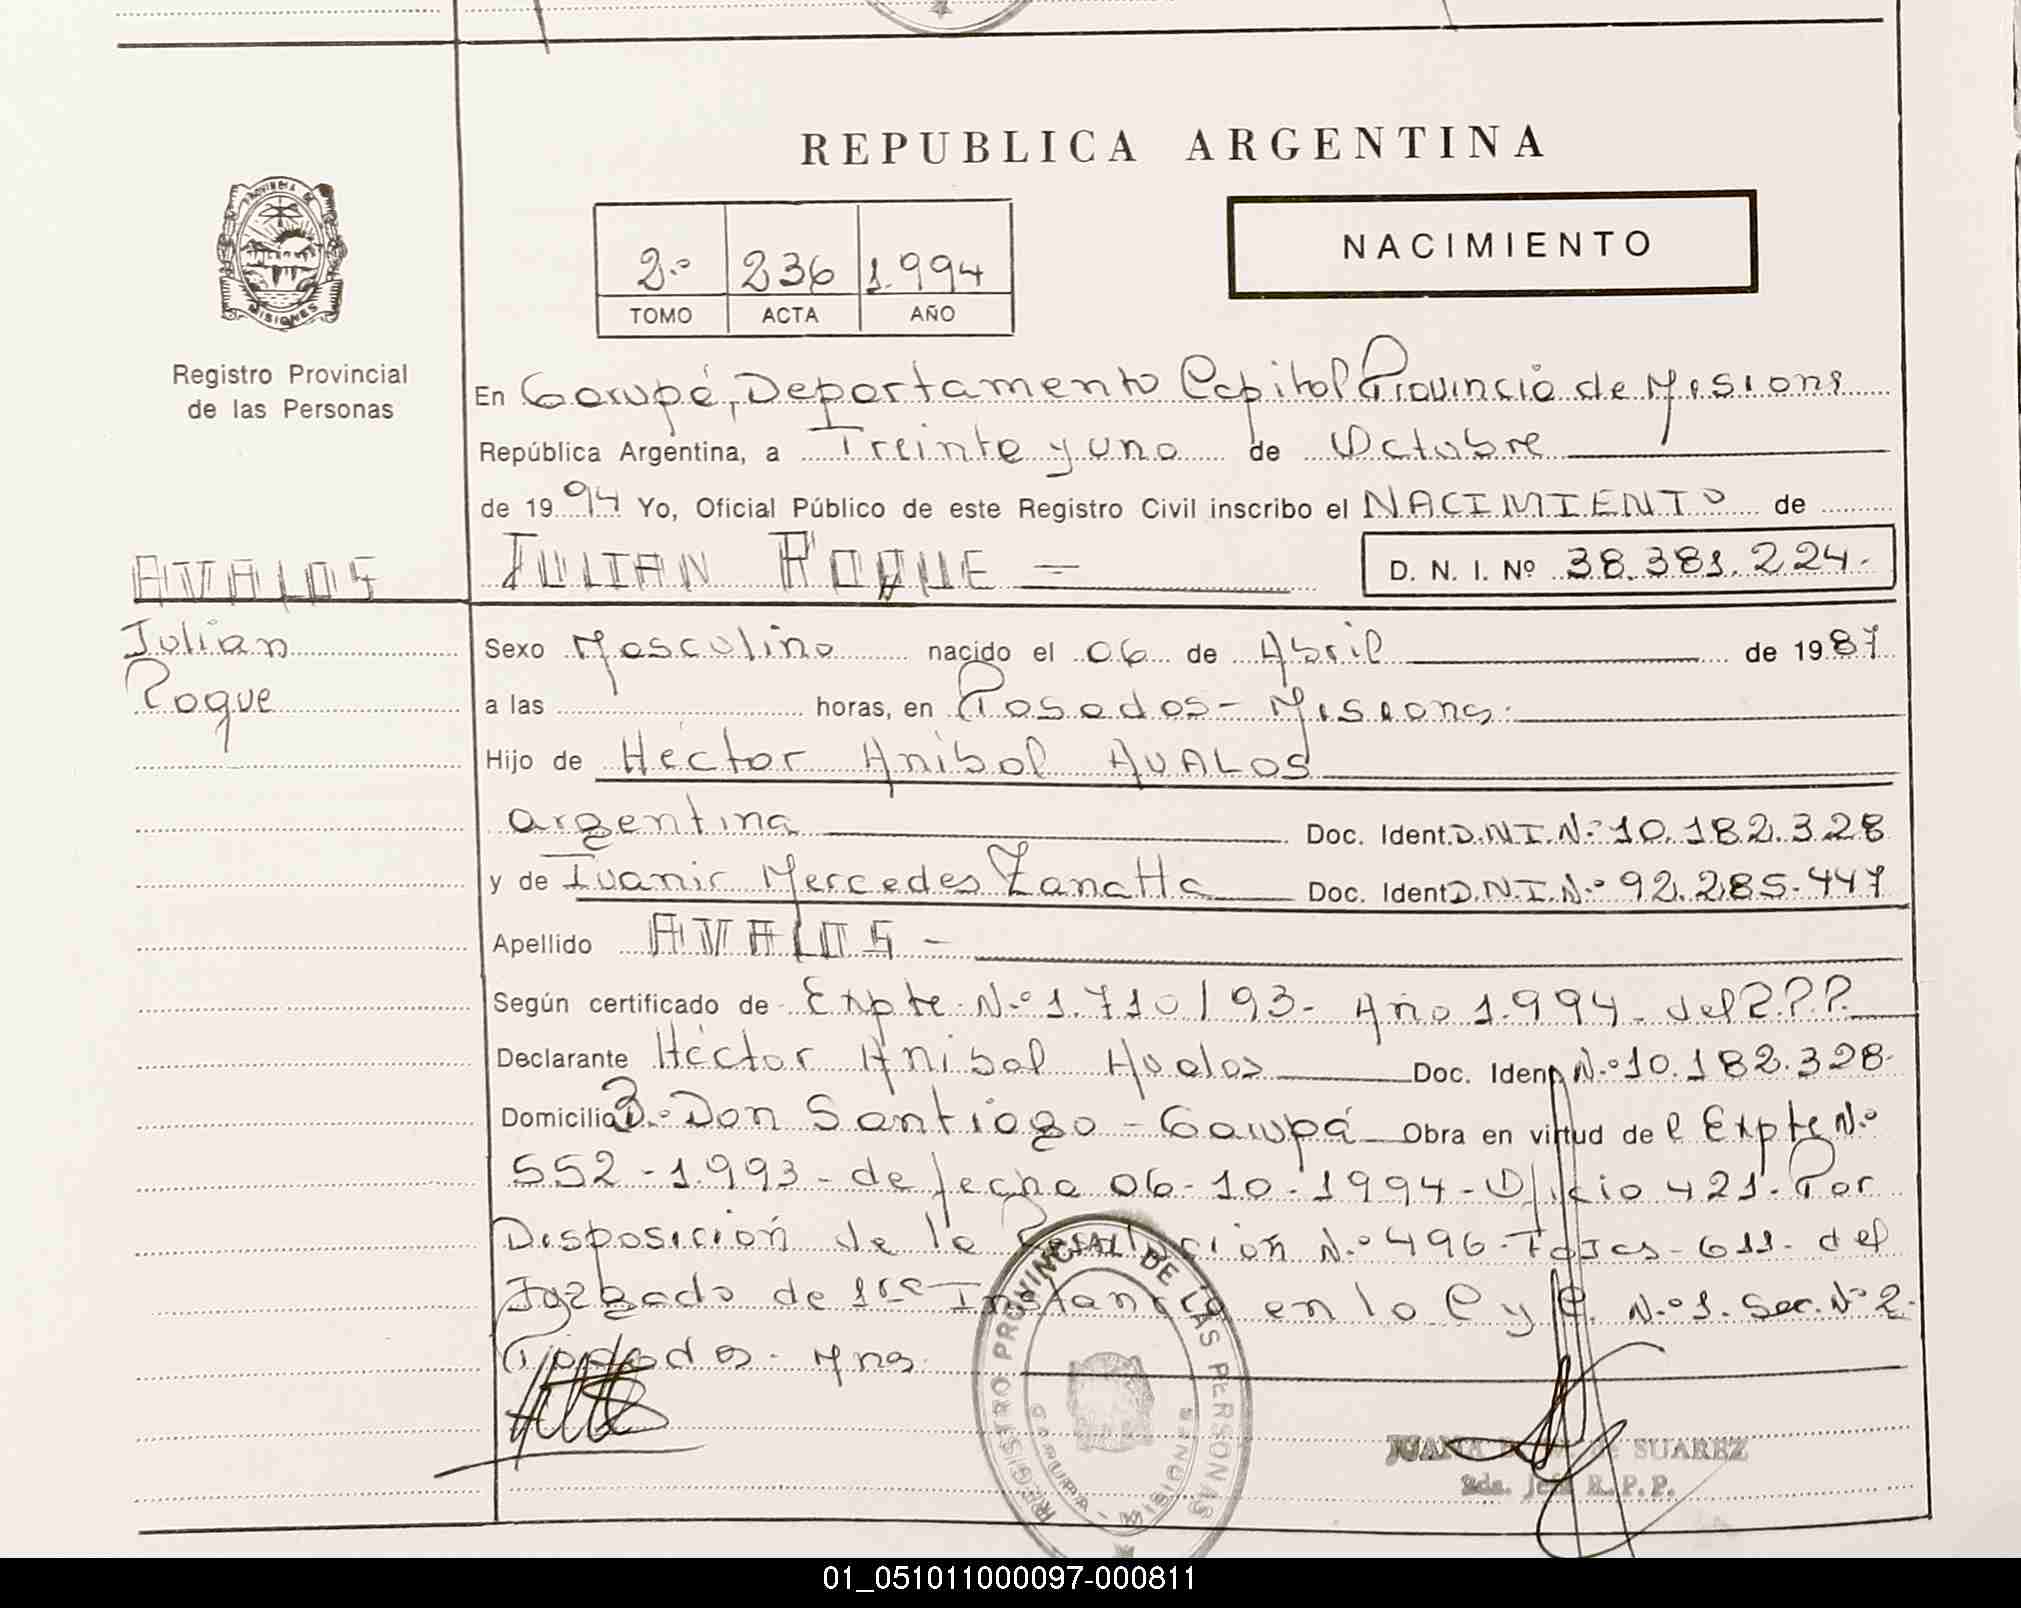 REPUBLICA ARGENTINA
PROVINCIA DE
MISIONES
Registro Provincial
de las Personas
2.º 236 1.994
TOMO ACTA AÑO
NACIMIENTO
En Garupá, Departamento Capital Provincia de Misions
República Argentina, a Treinta y uno de Octubre
de 1994 Yo, Oficial Público de este Registro Civil inscribo el NACIMIENTO de
AVALOS
JULIAN ROQUE =
D. N. I. Nº 38.381.224.
Julian
Roque
Sexo Masculino nacido el 06 de Abril de 1987
a las horas, en Posadas - Misiones.
Hijo de Héctor Anibal AVALOS
argentina Doc. Ident. D.N.I.N.º 10.182.328
y de Ivanir Mercedes Zanatta Doc. Ident D.N.I.N.º 92.285.447
Apellido AVALOS -
Según certificado de Expte. N.º 1.710/93- Año 1.994. del P.P.P.
Declarante Héctor Anibal Avalos Doc. Iden N.º 10.182.328.
Domicilio Don Santiago - Garupá Obra en virtud de l Expte N.º
552-1.993- de fecha 06-10-1994- Oficio 421. Por
Disposición de la Resolución N.º 496- Fojas- 611- del
Juzgado de 1ra Instancia en lo C y C. N.º 1. Sec. N.º 2.
Posadas. Mns.
REGISTRO PROVINCIAL DE LAS PERSONAS
GARUPA - MISIONES
JUANA de SUAREZ
2da. Jefe R.P.P.
01_051011000097-000811